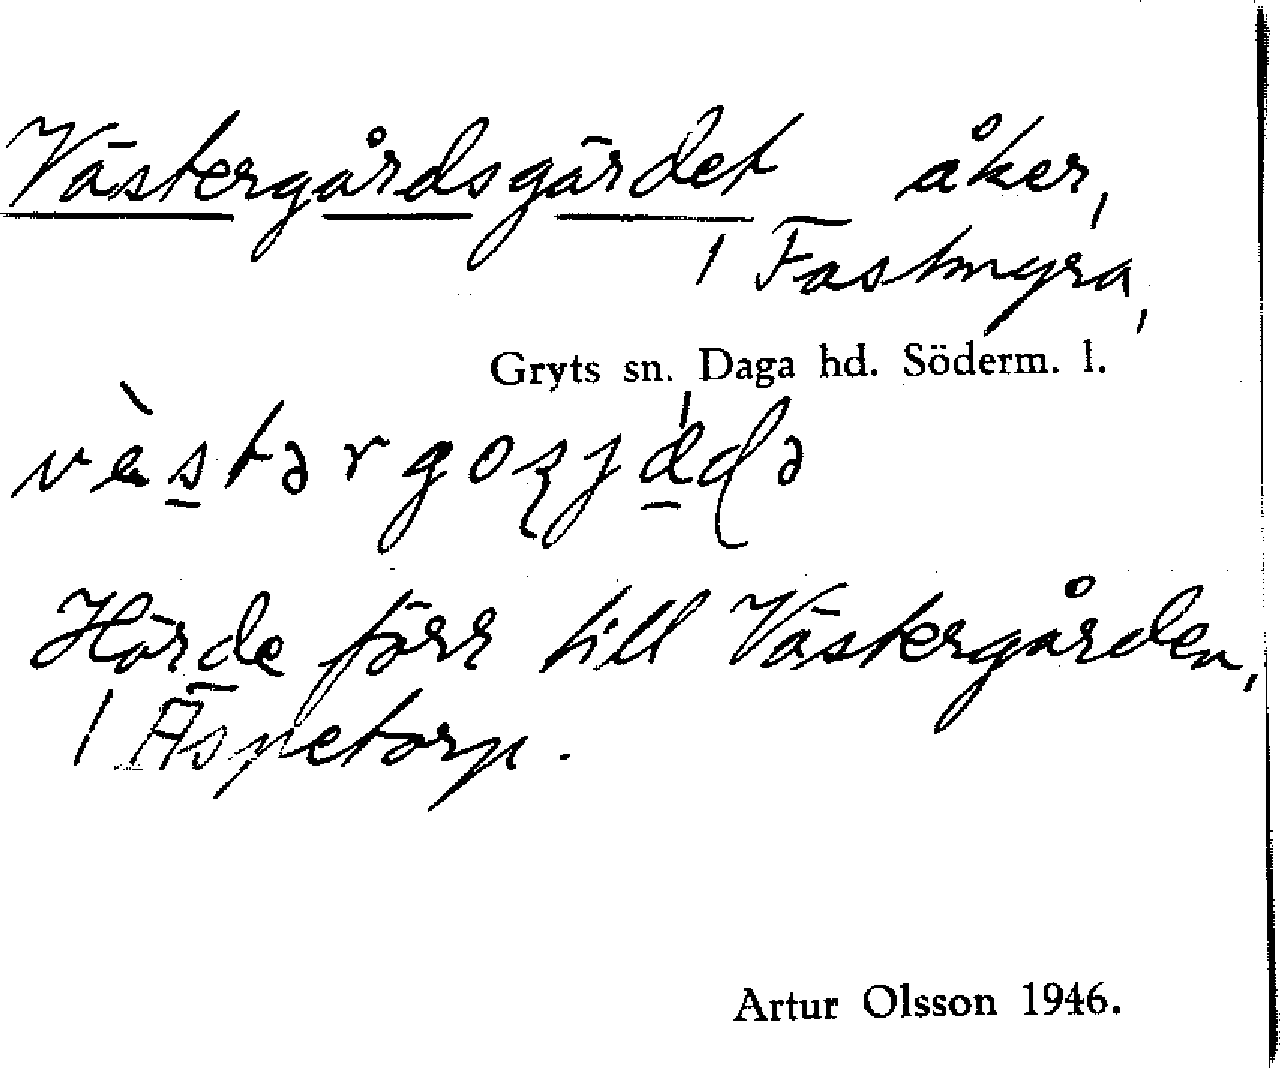 Västergårdsgärdet åker,
/ Fastmyra,
Gryts sn. Daga hd. Söderm. l.
Hörde förr till Västergården,
/ Äspetorp.
Artur Olsson 1946.